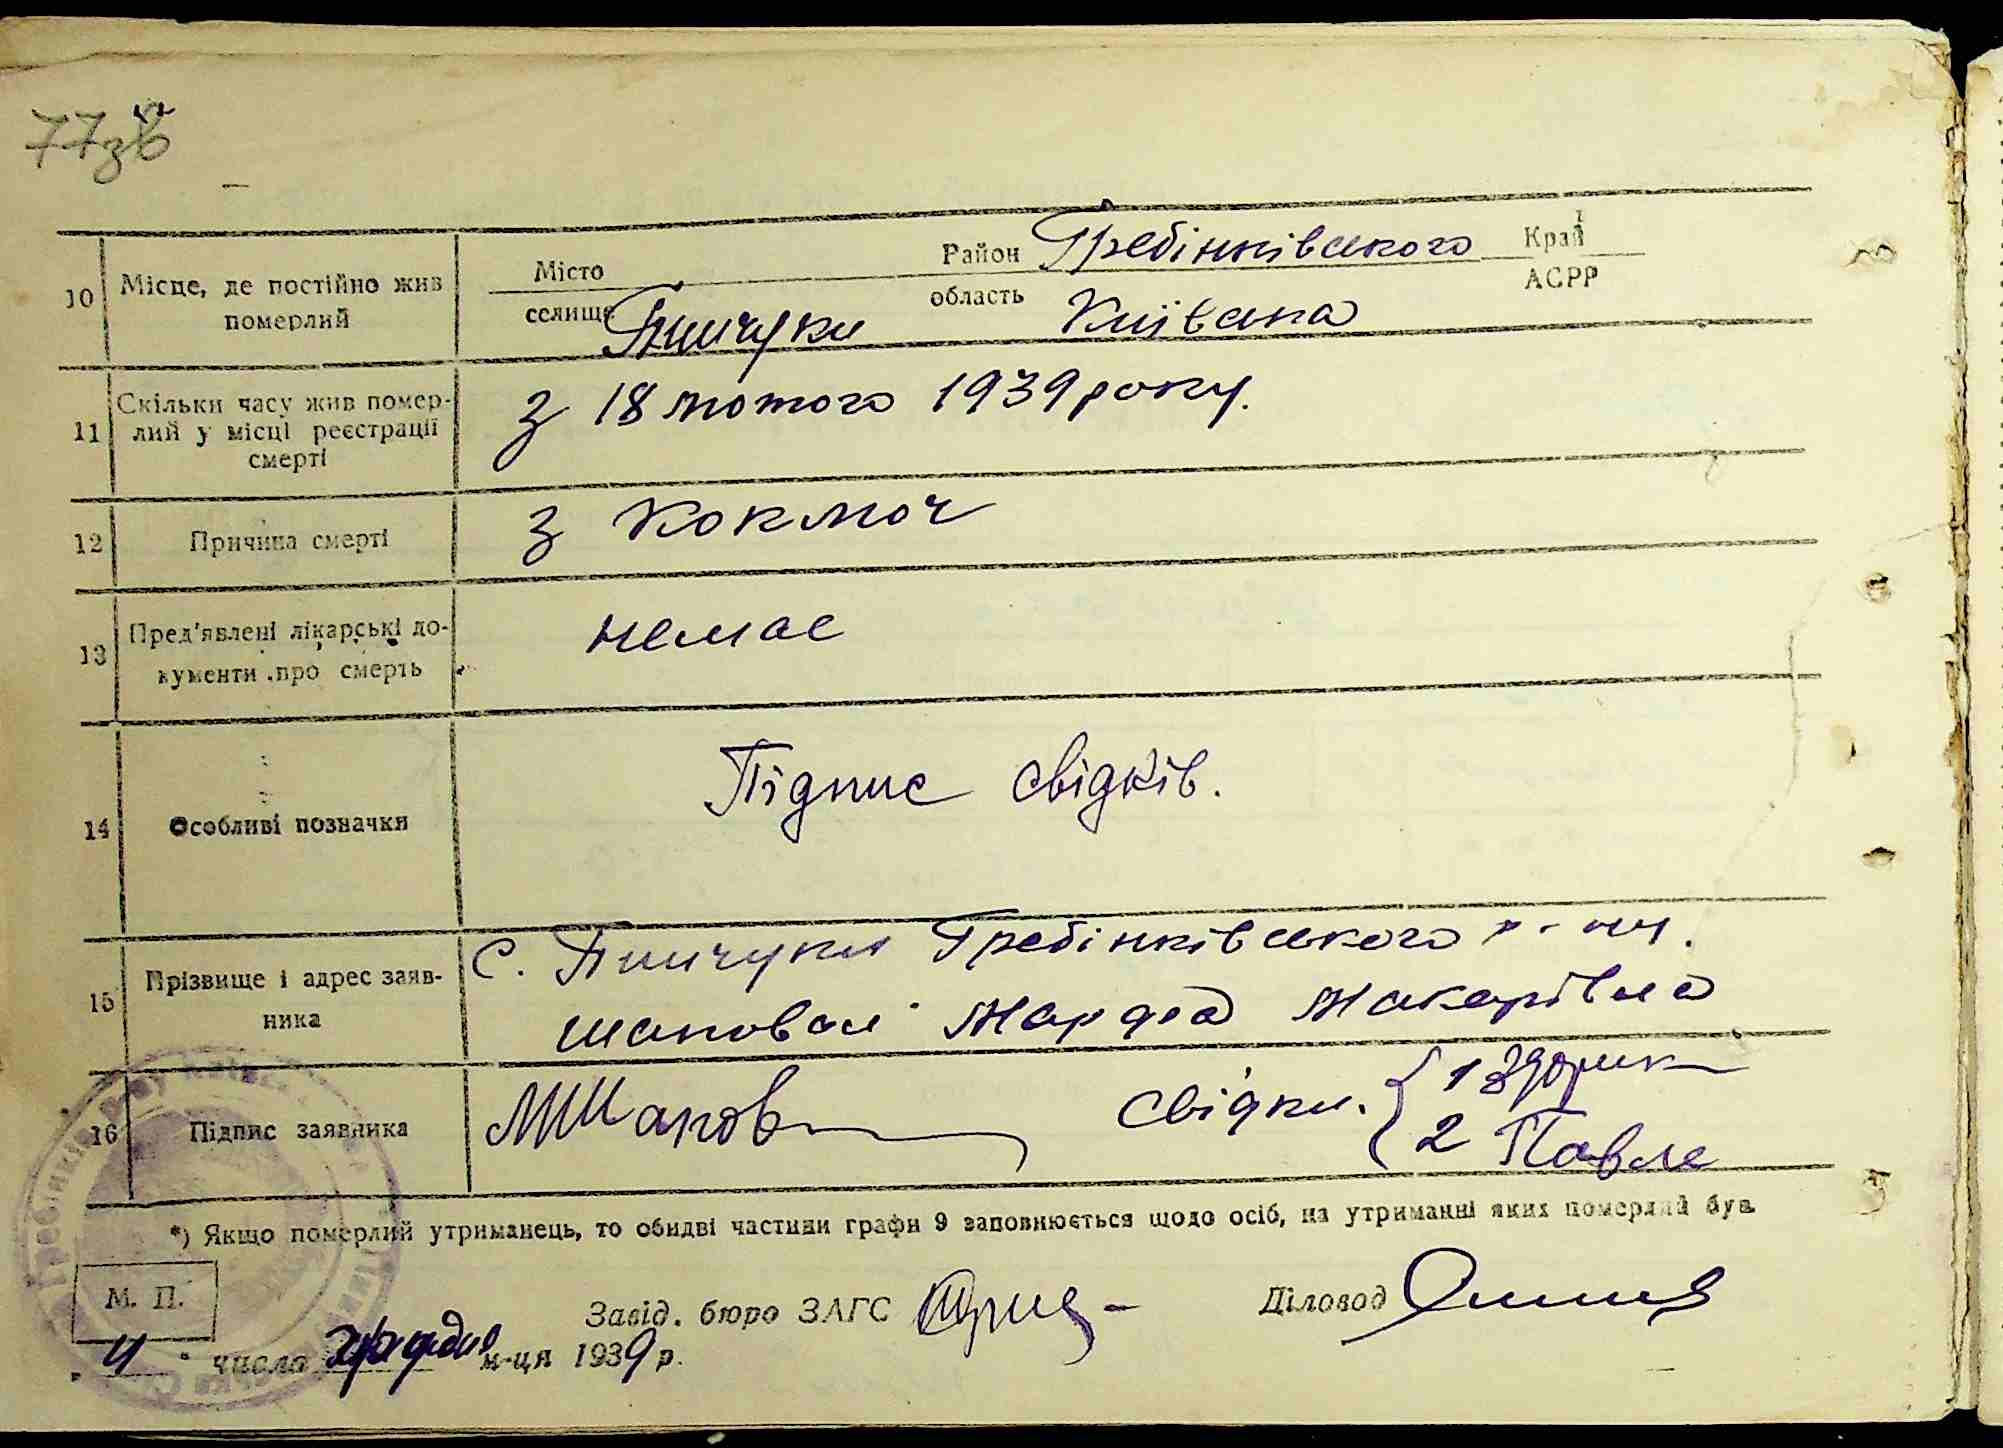 77зв
10 Місце, де постійно жив Місто Район Гребінківського Край
померлий селище Пінчуки область Київська АСРР
11 Скільки часу жив помер-
лий у місці реєстрації
смерті
з 18 лютого 1939 року.
12 Причина смерті з коключ
13 Пред'явлені лікарські до-
кументи про смерть
немає
14 Особливі позначки Підпис свідків.
15 Прізвище і адрес заяв-
ника
с. Пінчуки Гребінківського р-ну.
шаповал Марфа Макарівна
16 Підпис заявника МШапов свідки. 1 Здорик
2 Павле
*) Якщо померлий утриманець, то обидві частини графи 9 заповнюється щодо осіб, на утриманні яких померлий був.
М. П.
Завід. бюро ЗАГС Діловод
числа грудня м-ця 1939 р.